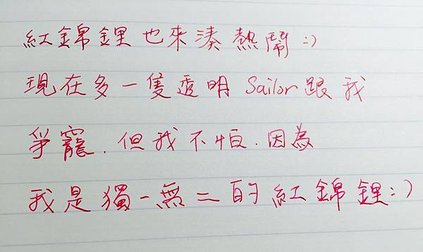 紅錦鋰也來湊熱鬧:)
現在多一隻透明Sailor跟我
爭寵.但我不怕.因為
我是獨一無二的紅錦鋰:)